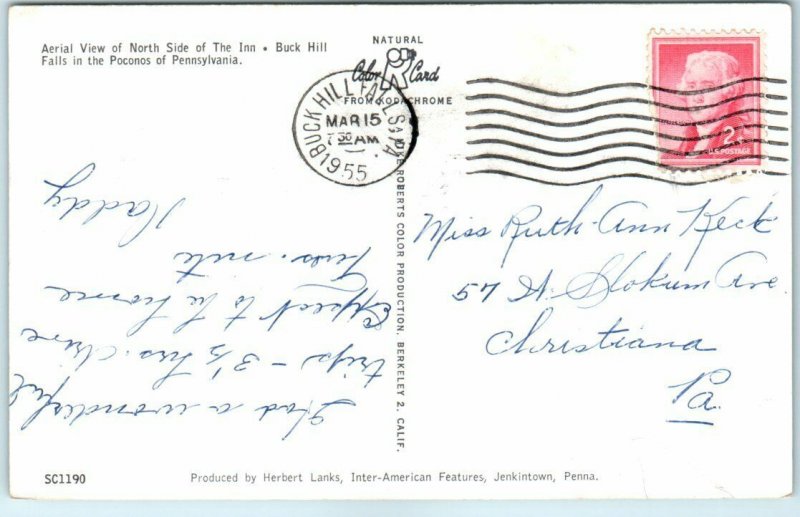 Aerial View of North Side of The Inn • Buck Hill
Falls in the Poconos of Pennsylvania.
NATURAL
Color Card
FROM KODACHROME
BUCK HILL FALLS, PA.
MAR 15
7 30 AM
1955
2¢
U.S. POSTAGE
A MIKE ROBERTS COLOR PRODUCTION, BERKELEY 2, CALIF.
Had a wonderful
trip - 3½ hrs. drive
Expect to be home
Tues. nite
Daddy
Miss Ruth-Ann Keck
57 Slokum Ave.
Christiana
Pa.
SC1190
Produced by Herbert Lanks, Inter-American Features, Jenkintown, Penna.